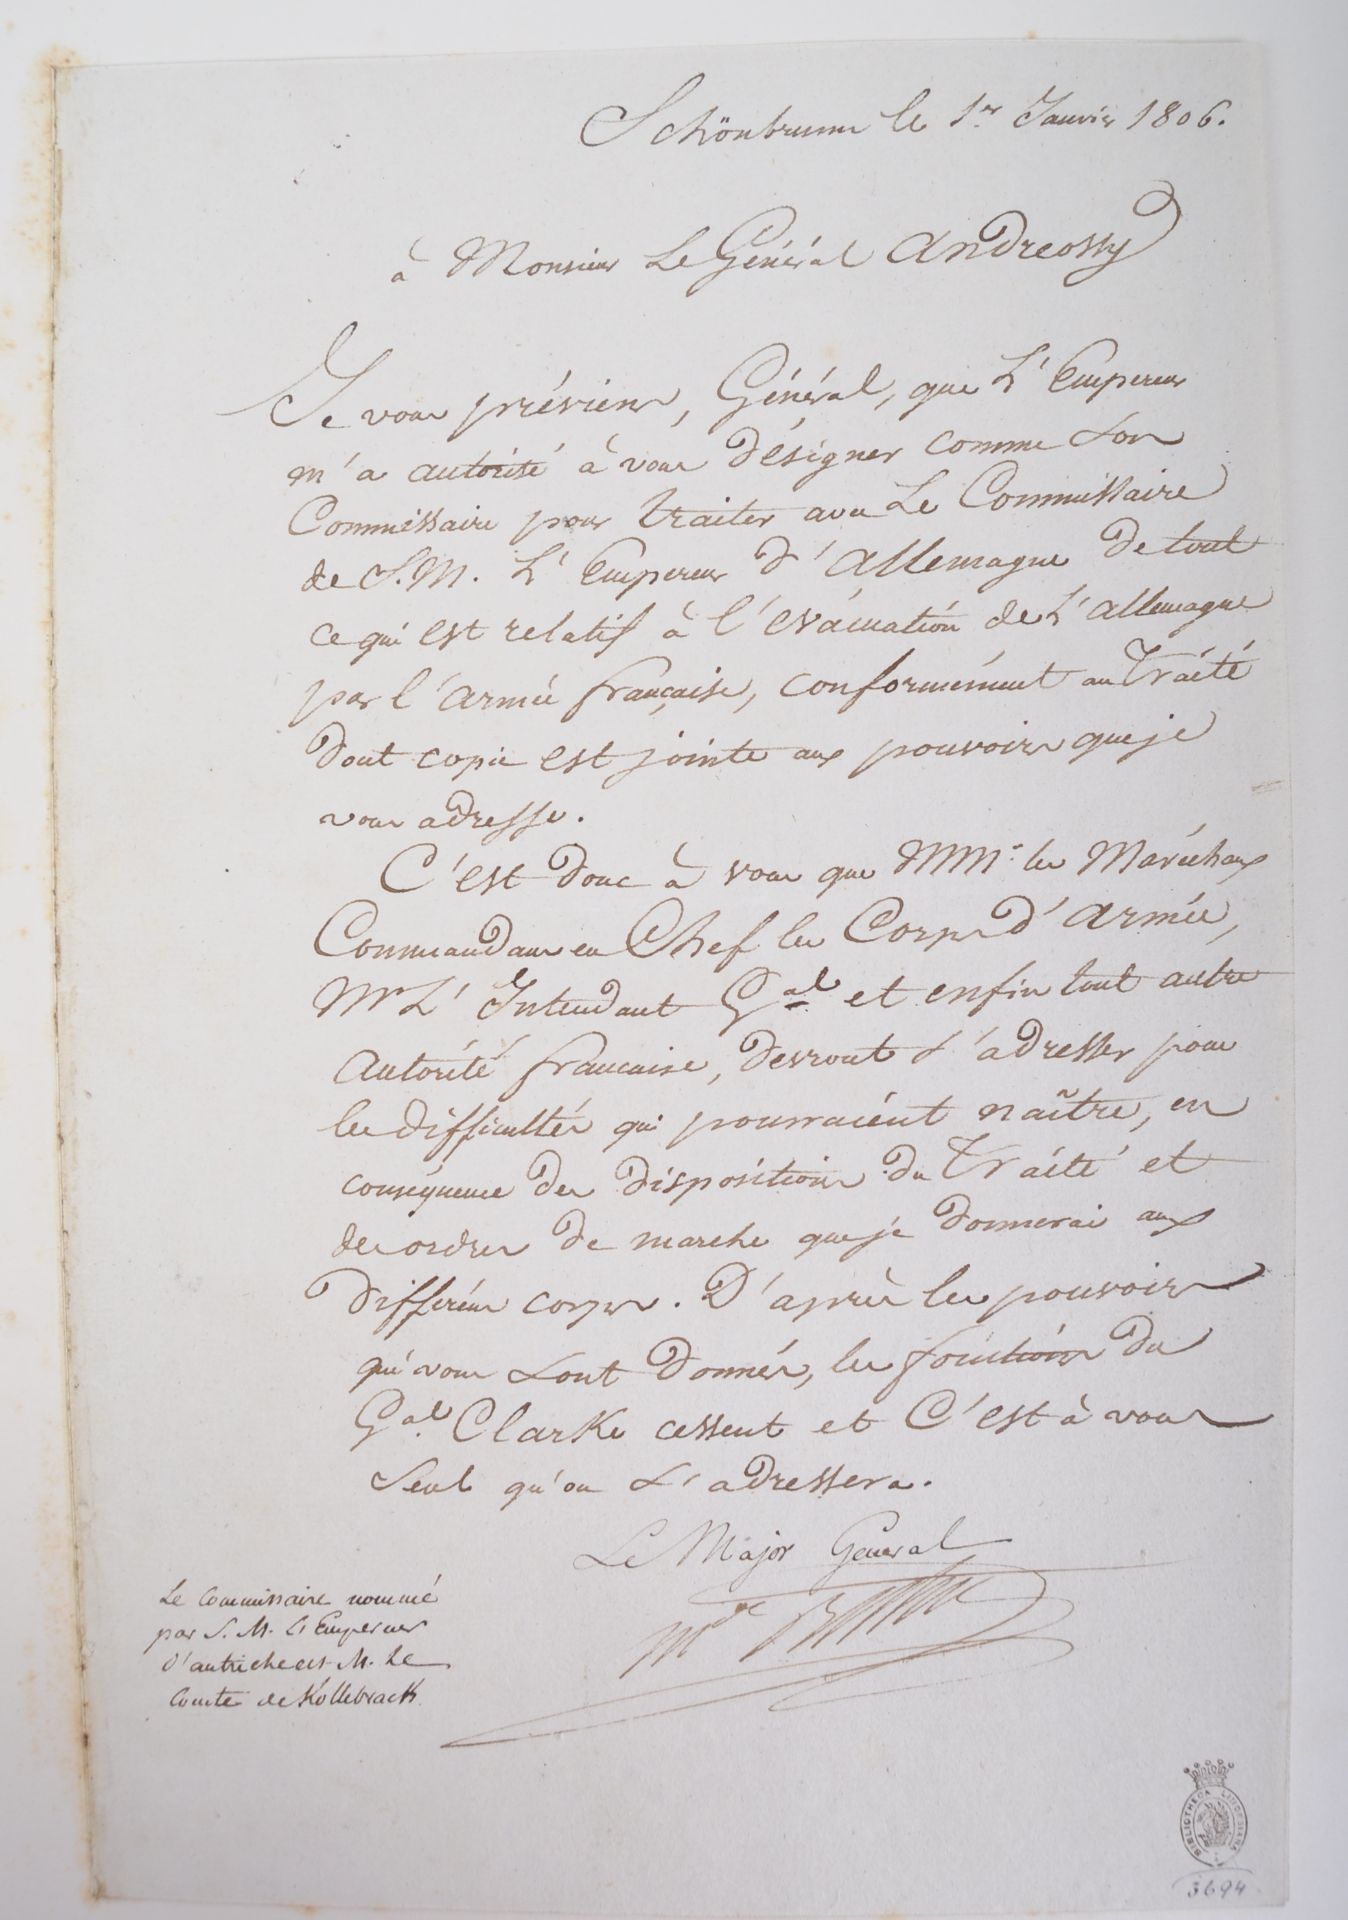 Schönbrunn le 1.er Janvier 1806.
à Monsieur Le Général Andreossy
Je vous préviens, Général, que L'Empereur
m'a autorisé à vous désigner comme son
Commissaire pour traiter avec Le Commissaire
de S.M. L'Empereur d'Allemagne de tout
ce qui est relatif à l'évacuation de L'Allemagne
par l'armée française, conformément au Traité
dont copie est jointe aux pouvoirs que je
vous adresse.
C'est donc à vous que MM.rs les Maréchaux
Commandans en Chef les Corps d'Armée,
Mr L'Intendant Gal et enfin tout autre
autorité francaise, devront s'adresser pour
les difficultés qui pourraient naître, en
conséquence des dispositions du Traité et
des ordres de marche que je donnerai aux
différens corps. D'après les pouvoirs
qui vous sont donnés, les fonctions du
Gal. Clarke cessent et C'est à vous
Seul qu'on s'adressera.
Le Major Général
Mal Berthier
Le Commissaire nommé
par S.M. L'Empereur
d'autriche est M. Le
Comte de Kollebrack.
BIBLIOTHECA LINDESIANA
3694